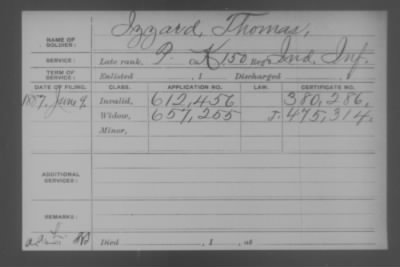 NAME OF SOLDIER: Izzard, Thomas,
SERVICE: Late rank, P. Co. K, 150 Reg't Ind. Inf.
TERM OF SERVICE: Enlisted , 1 Discharged , 1
DATE OF FILING. CLASS. APPLICATION NO. LAW. CERTIFICATE NO.
1887, June 9. Invalid, 612,456 380,286,
Widow, 657,255 J. 475,314,
Minor,
ADDITIONAL SERVICES:
REMARKS:
Died , 1 , at